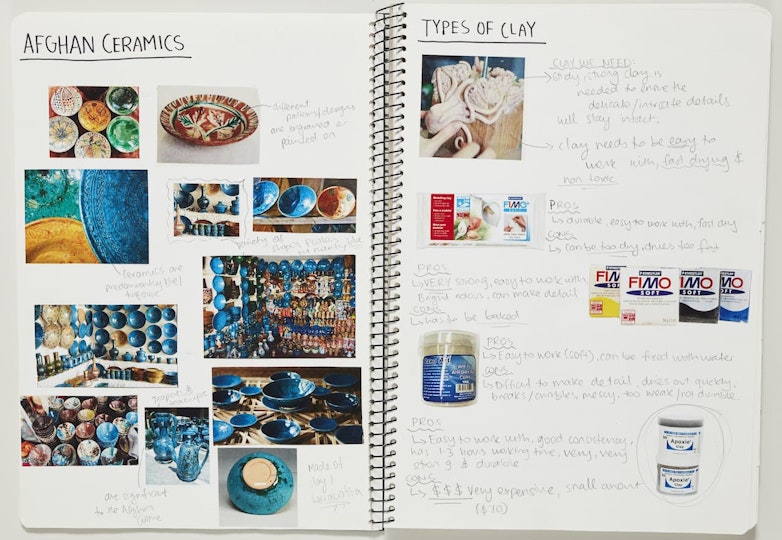 AFGHAN CERAMICS
different
are engraved or
painted on
variety of
Ceramics are
predominantly blue/
turquoise
Made of
clay/
are significant
to the Afghan
TYPES OF CLAY
CLAY WE NEED:
strong clay is
needed to ensure the
delicate/intricate details
will stay intact.
clay needs to be easy to
work with, fast drying &
non toxic
FIMO
PROS
durable, easy to work with, fast dry
CONS
can be too dry, dries too fast
PROS
VERY strong, easy to work with,
Bright colours, can make detail
CONS
has to be baked
FIMO SOFT
FIMO SOFT
FIMO SOFT
FIMO SOFT
PROS
Easy to work (soft), can be fixed with water
CONS
Difficult to make detail, dries out quickly,
breaks/crumbles, messy, too weak/not durable.
PROS
Easy to work with, good consistency,
has 1-3 hours working time, very, very
strong & durable
CONS
$$$ very expensive, small amount
($70)
Apoxie
Clay
Apoxie
Clay